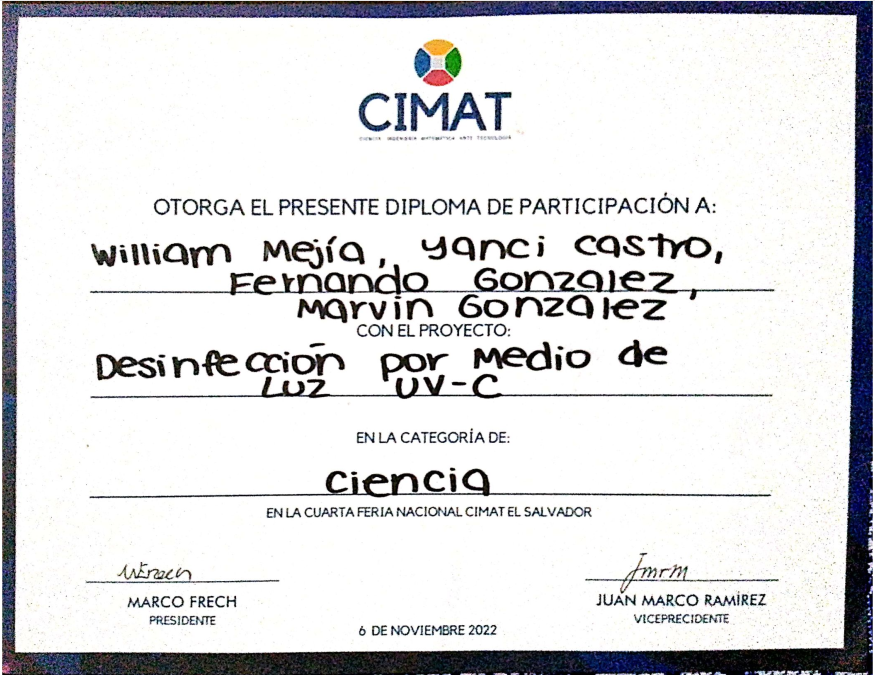 CIMAT
CIENCIA INGENIERÍA MATEMÁTICA ARTE TECNOLOGÍA
OTORGA EL PRESENTE DIPLOMA DE PARTICIPACIÓN A:
William Mejía, Yanci Castro,
Fernando Gonzalez,
Marvin Gonzalez
CON EL PROYECTO:
Desinfección por Medio de
Luz UV-C
EN LA CATEGORÍA DE:
Ciencia
EN LA CUARTA FERIA NACIONAL CIMAT EL SALVADOR
MARCO FRECH
PRESIDENTE
JUAN MARCO RAMÍREZ
VICEPRECIDENTE
6 DE NOVIEMBRE 2022